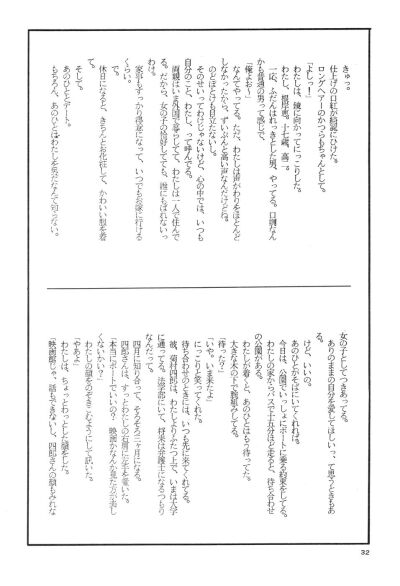 きゅっ。
仕上げの口紅が綺麗にひけた。
ロングヘアーのかつらもちゃんとして。
「よしっ！」
わたしは、鏡に向かってにっこりした。
わたし、根岸恵。十七歳、高二。
一応、ふだんはれっきとした男、やってる。口調なん
かも普通の男って感じで、
「俺よお～」
なんてやってる。ただ、わたしは声がわりをほとんど
しなかったから、ずいぶんと高い声なんだけどね。
のどぼとけも目立たないし。
そのせいってわけじゃないけど、心の中では、いつも
自分のこと、わたし、って呼んでる。
両親はいま外国で暮らしてて、わたしは一人で住んで
る。だから、女の子の恰好してても、誰にもばれないっ
てわけ。
家事もすっかり得意になって、いつでもお嫁に行ける
くらい。
で。
休日になると、きちんとお化粧して、かわいい服を着
て。
そして。
あのひととデート。
もちろん、あのひとはわたしを男だなんて知らない。
女の子としてつきあってる。
ありのままの自分を愛してほしい、って思うときもあ
る。
けど、いいの。
あのひとがそばにいてくれれば。
今日は、公園でいっしょにボートに乗る約束をしてる。
わたしの家からバスで十五分ほど走ると、待ち合わせ
の公園がある。
わたしが着くと、あのひとはもう待ってた。
大きな木の下で腕組みしてる。
「待った？」
「いや。いま来たよ」
にっこりと笑ってくれた。
待ち合わせのときには、いつも先に来てくれてる。
彼、菊村四郎は、わたしよりふたつ上で、いまは大学
に通ってる。法学部にいて、将来は弁護士になるつもり
なんだって。
四月に知り合って、そろそろ三ヶ月になる。
四郎さんは、すっとわたしの右肩に左手を置いた。
「本当にボートでいいの？　映画かなんか見た方が楽し
くないかい？」
わたしの顔をのぞきこむようにして訊いた。
「やあよ」
わたしは、ちょっとわっとした顔をした。
「映画館じゃ、話もできないし、四郎さんの顔もみれな
32